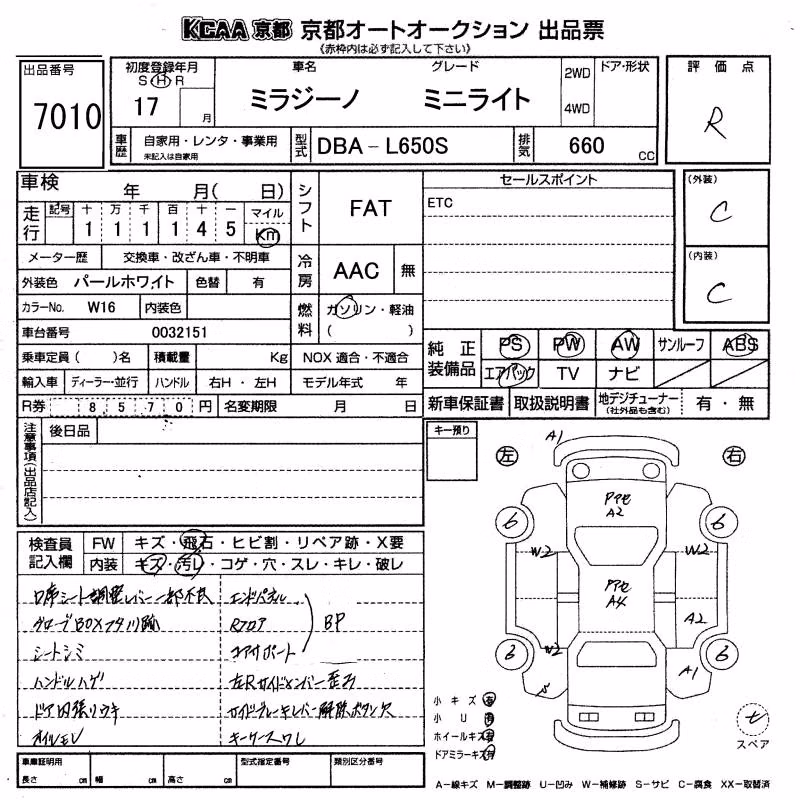 KCAA 京都 京都オートオークション 出品票
《赤枠内は必ず記入して下さい》
出品番号
7010
初度登録年月
S H R
17 月
車名 グレード
ミラジーノ ミニライト
2WD
4WD
ドア・形状
評価点
R
車歴
自家用・レンタ・事業用
未記入は自家用
型式
DBA-L650S
排気
660 CC
車検 年 月( 日)
走行
記号 十 万 千 百 十 一 マイル
1 1 1 1 4 5 Km
メーター歴 交換車・改ざん車・不明車
外装色 パールホワイト 色替 有
カラーNo. W16 内装色
車台番号 0032151
乗車定員( )名 積載量 Kg
輸入車 ディーラー・並行 ハンドル 右H・左H
R券 8 5 7 0 円 名変期限 月 日
シフト FAT
冷房 AAC 無
燃料 ガソリン・軽油
( )
NOX 適合・不適合
モデル年式 年
セールスポイント
ETC
(外装)
C
(内装)
C
純正装備品
PS PW AW サンルーフ ABS
エアバック TV ナビ
新車保証書 取扱説明書 地デジチューナー
(社外品も含む)
有・無
注意事項(出品店記入)
後日品
キー預り
左 右
A1
Pアセ
A2
6 6
W2 W2
Pアセ
A4
A2
6 6
W2
A1
S
検査員記入欄
FW キズ・飛石・ヒビ割・リペア跡・X要
内装 キズ・汚レ・コゲ・穴・スレ・キレ・破レ
D席シート調整レバー一部不良 エンドパネル
グローブBOXフタ Rフロア BP
シートシミ コアサポート
ハンドルハゲ 左Rサイドメンバー歪み
ドア内張りウキ サイドブレーキレバー解除ボタン欠
オイルモレ キーケースワレ
小キズ 有
小U 有
ホイールキズ 有
ドアミラーキズ 有
スペア
車庫証明用
長さ cm 幅 cm 高さ cm
型式指定番号 類別区分番号
A-線キズ M-調整跡 U-凹み W-補修跡 S-サビ C-腐食 XX-取替済